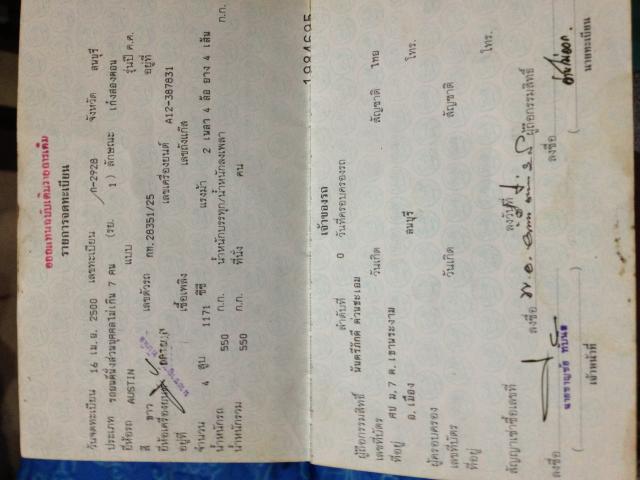 ออกแทนฉบับเดิมรายการเดิม
รายการจดทะเบียน
วันจดทะเบียน 16 เม.ย. 2500 เลขทะเบียน ก-2928 จังหวัด ลพบุรี
ประเภท รถยนต์นั่งส่วนบุคคลไม่เกิน 7 คน (รย. 1) ลักษณะ เก๋งสองตอน
ยี่ห้อรถ AUSTIN แบบ รุ่นปี ค.ศ.
สี ขาว เลขตัวรถ กท.28351/25 อยู่ที่
ยี่ห้อเครื่องยนต์ ออสติน เลขเครื่องยนต์ A12-387831
อยู่ที่ เชื้อเพลิง เลขถังแก๊ส
จำนวน 4 สูบ 1171 ซีซี แรงม้า 2 เพลา 4 ล้อ ยาง 4 เส้น
น้ำหนักรถ 550 ก.ก. น้ำหนักบรรทุก/น้ำหนักลงเพลา ก.ก.
น้ำหนักรวม 550 ก.ก. ที่นั่ง คน
1984695
เจ้าของรถ
ลำดับที่ 0 วันที่ครอบครองรถ
ผู้ถือกรรมสิทธิ์ มันตรีภักดี ด่วนชะเอม
เลขที่บัตร วันเกิด สัญชาติ ไทย
ที่อยู่ ศป ม.7 ต.เขาพระงาม โทร.
อ.เมือง ลพบุรี
ผู้ครอบครอง
เลขที่บัตร วันเกิด สัญชาติ
ที่อยู่ โทร.
สัญญาเช่าซื้อเลขที่ ลงวันที่
ลงชื่อ ผู้ถือกรรมสิทธิ์
ลงชื่อ ลงชื่อ
เจ้าหน้าที่ นายทะเบียน